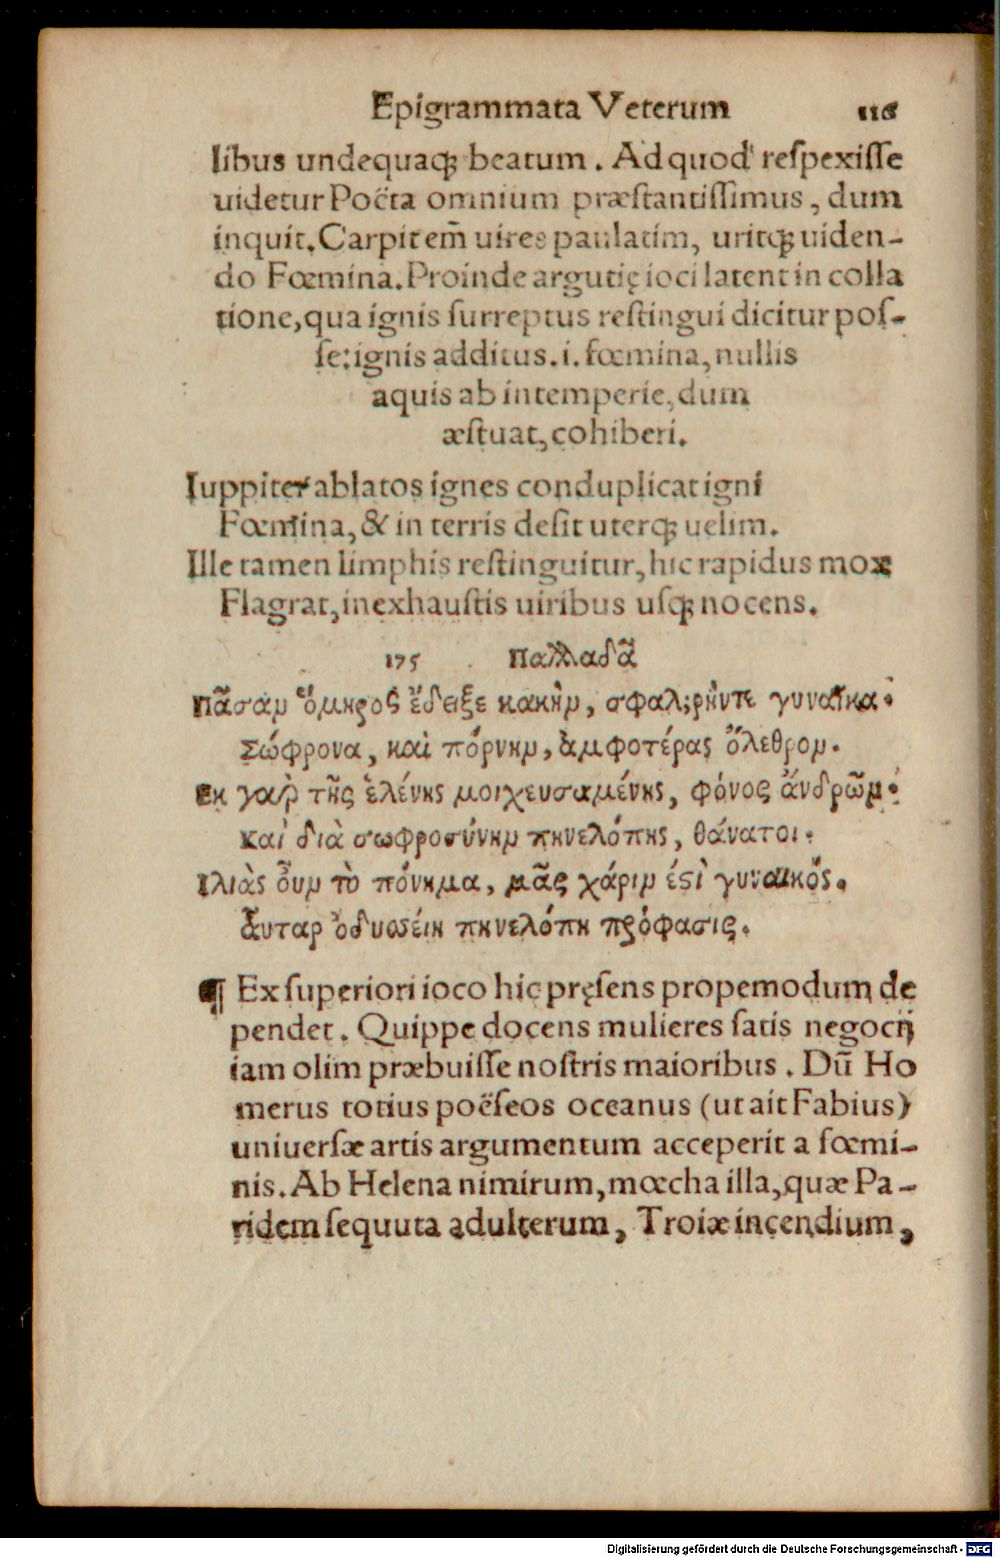 Epigrammata Veterum 116
libus undequaqꝫ beatum. Ad quod respexisse
uidetur Poëta omnium præstantissimus, dum
inquit. Carpit em̃ uires paulatim, uritqꝫ uiden-
do Fœmina. Proinde argutię ioci latent in colla
tione, qua ignis surreptus restingui dicitur pos-
se: ignis additus. i. fœmina, nullis
aquis ab intemperie, dum
æstuat, cohiberi.
Iuppiter ablatos ignes conduplicat igni
Fœmina, & in terris desit uterqꝫ uelim.
Ille tamen limphis restinguitur, hic rapidus mox
Flagrat, inexhaustis uiribus usqꝫ nocens.
175 Παλλαδᾶ
Πᾶσαμ ὅμηρος ἔδειξε κακὴμ, σφαλερήντε γυναῖκα·
Σώφρονα, καὶ πόρνημ, ἀμφοτέρας ὄλεθρομ.
Εκ γαρ τῆς ἑλένης μοιχευσαμένης, φόνος ἀνδρῶμ·
Καὶ διὰ σωφροσύνημ πηνελόπης, θάνατοι·
Ιλιὰς οὖμ τὸ πόνημα, μᾶς χάριμ ἐςὶ γυναικός.
Αυταρ ὀδυσσείη πηνελόπη πρόφασις.
¶ Ex superiori ioco hic pręsens propemodum de
pendet. Quippe docens mulieres satis negocij
iam olim præbuisse nostris maioribus. Dũ Ho
merus totius poëseos oceanus (ut ait Fabius)
uniuersæ artis argumentum acceperit a fœmi-
nis. Ab Helena nimirum, mœcha illa, quæ Pa-
ridem sequuta adulterum, Troiæ incendium,
Digitalisierung gefördert durch die Deutsche Forschungsgemeinschaft - DFG